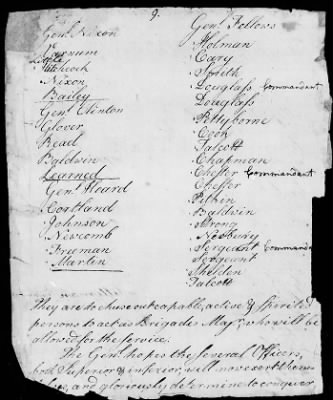 9.
Genl. Nixon
Varnum
Little
Hitchcock
Nixon
Bailey
Genl. Clinton
Glover
Read
Baldwin
Learned
Genl. Heard
Cortland
Johnson
Newcomb
Freeman
Martin
Genl. Fellows
Holman
Cary
Smith
Douglass Commandant
Douglass
Pettyborne
Cook
Talcott
Chapman
Chester Commandant
Chester
Pitkin
Baldwin
Strong
Newbery
Sergeant Commandant
Sergeant
Shelden
Talcott
They are to chuse out capable, active & spirited
persons to act as Brigade Majrs, who will be
allowed for the service.
The Genl. hopes the several Officers,
both Superior & inferior, will now exert them
and gloriously determine to conquer